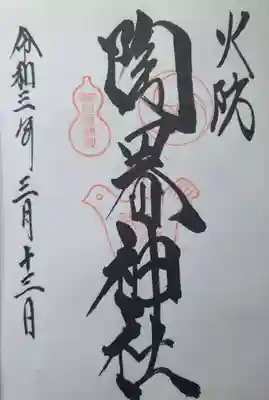 火防
陶器神社
令和三年三月十三日